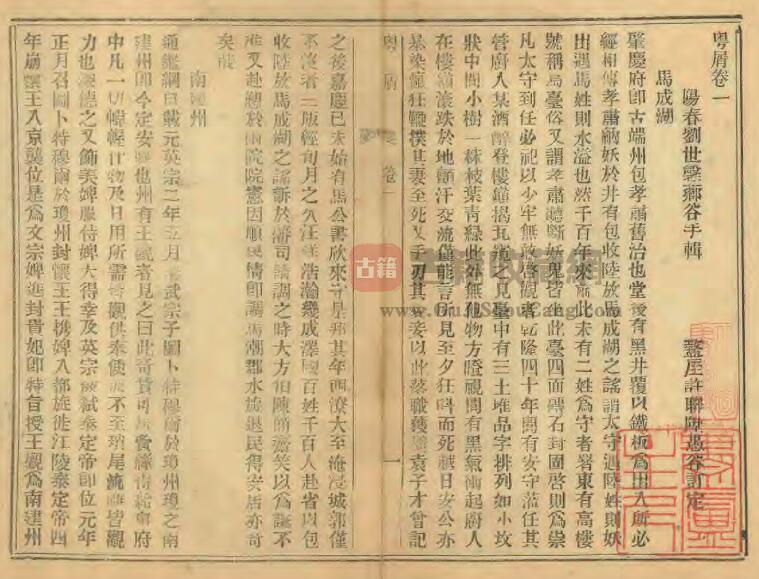 粵屑卷一
陽春劉世馨薌谷手輯
盩厔許聯陞愚谷訂定
馬成湖
肇慶府即古端州包孝肅舊治也堂後有黑井覆以鐵板爲出入所必
經相傳孝肅納妖於井有包收陸放馬成湖之謠謂太守遇陸姓則妖
出遇馬姓則水溢也然千百年來 此未有二姓爲守者署東有高樓
號稱烏臺俗又謂孝肅聽斷妖鬼皆在此臺四面磚石封固啓則爲祟
凡太守到任必祀以少牢無敢啓觀者乾隆四十年間有安守蒞任其
管廚人某酒醉登樓 揭瓦 之見臺中有三土堆品字排列如小坟
狀中間小樹一株枝葉青綠此外無他物方瞪視間有黑氣衝起廚人
在樓 滾跌於地顫汗交流僅能言所見至夕狂叫而死越日安公亦
暴染瘋狂鞭撲其妻至死又手刃其 妾以此落職 袁子才曾記
粵屑 卷一 一
之後嘉慶己未始有馬公書欣來守是邦其年西潦大至淹浸城郭僅
不沒者三版經旬月之久汪洋浩瀚幾成澤國百姓千百人赴省以包
收陸放馬成湖之謠訴於藩司請調之時大方伯陳 笑以爲誕不
准又赴愬於兩院院憲因順民情即調馬潮郡水旋退民得安居亦奇
矣哉
南建州
通鑑綱目載元英宗二年五月 武宗子圖卜特穆爾於瓊州瓊之南
建州即今定安縣也州有王 者見之曰此奇貨可居 資 給 府
中凡一切幃幄什物及日用所需皆觀供奉使 不至瑣尾流離皆觀
力也 德之又飾美婢服侍婢大得幸及英宗被弒泰定帝即位元年
正月召圖卜特穆爾於瓊州封懷王王機婢入都旋徙江陵泰定帝四
年崩懷王入京襲位是爲文宗婢進封貴妃即特旨授王觀爲南建州
古籍收藏網
www.GuJiShouCang.com